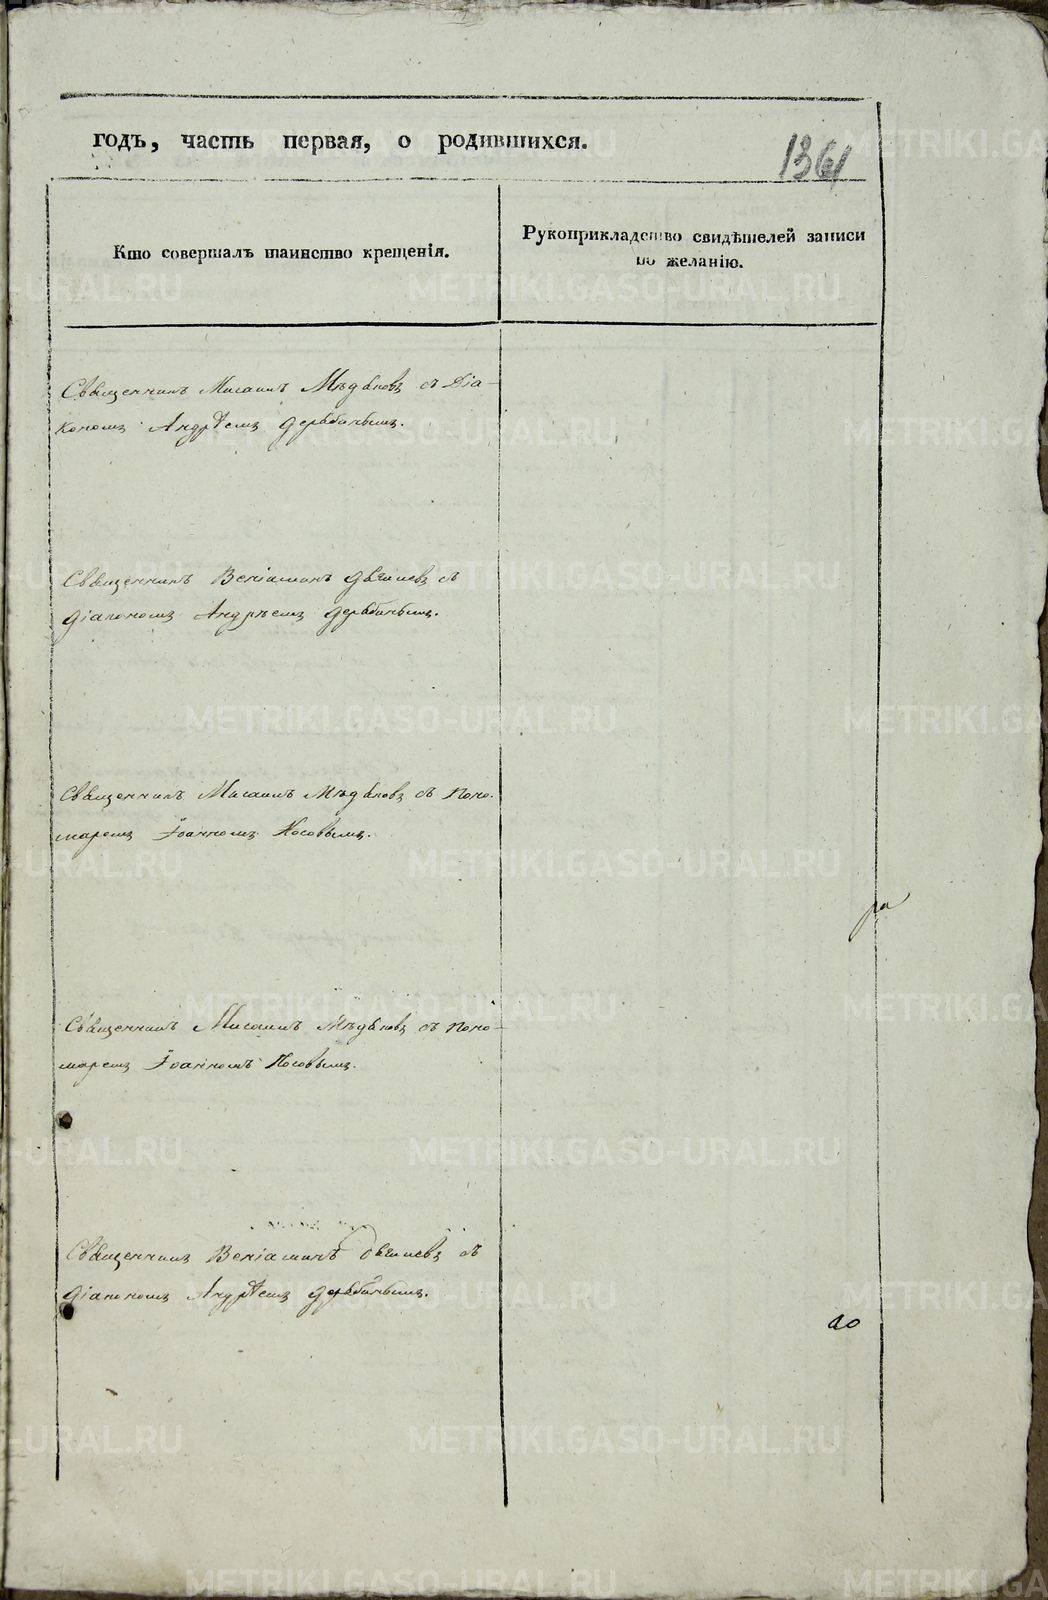 годъ, часть первая, о родившихся.
136
Кто совершалъ таинство крещенія.
Рукоприкладство свидѣтелей записи
по желанію.
Священникъ Мисаилъ Мѣдяковъ съ Діа-
кономъ Андрѣемъ Дерябинымъ.
Священникъ Веніаминъ съ
Діакономъ Андрѣемъ Дерябинымъ.
Священникъ Мисаилъ Мѣдяковъ съ Поно-
маремъ Іоанномъ Носовымъ.
ра
Священникъ Мисаилъ Мѣдяковъ съ Поно-
маремъ Іоанномъ Носовымъ.
Священникъ Веніаминъ съ
Діакономъ Андрѣемъ Дерябинымъ.
до
METRIKI.GASO-URAL.RU